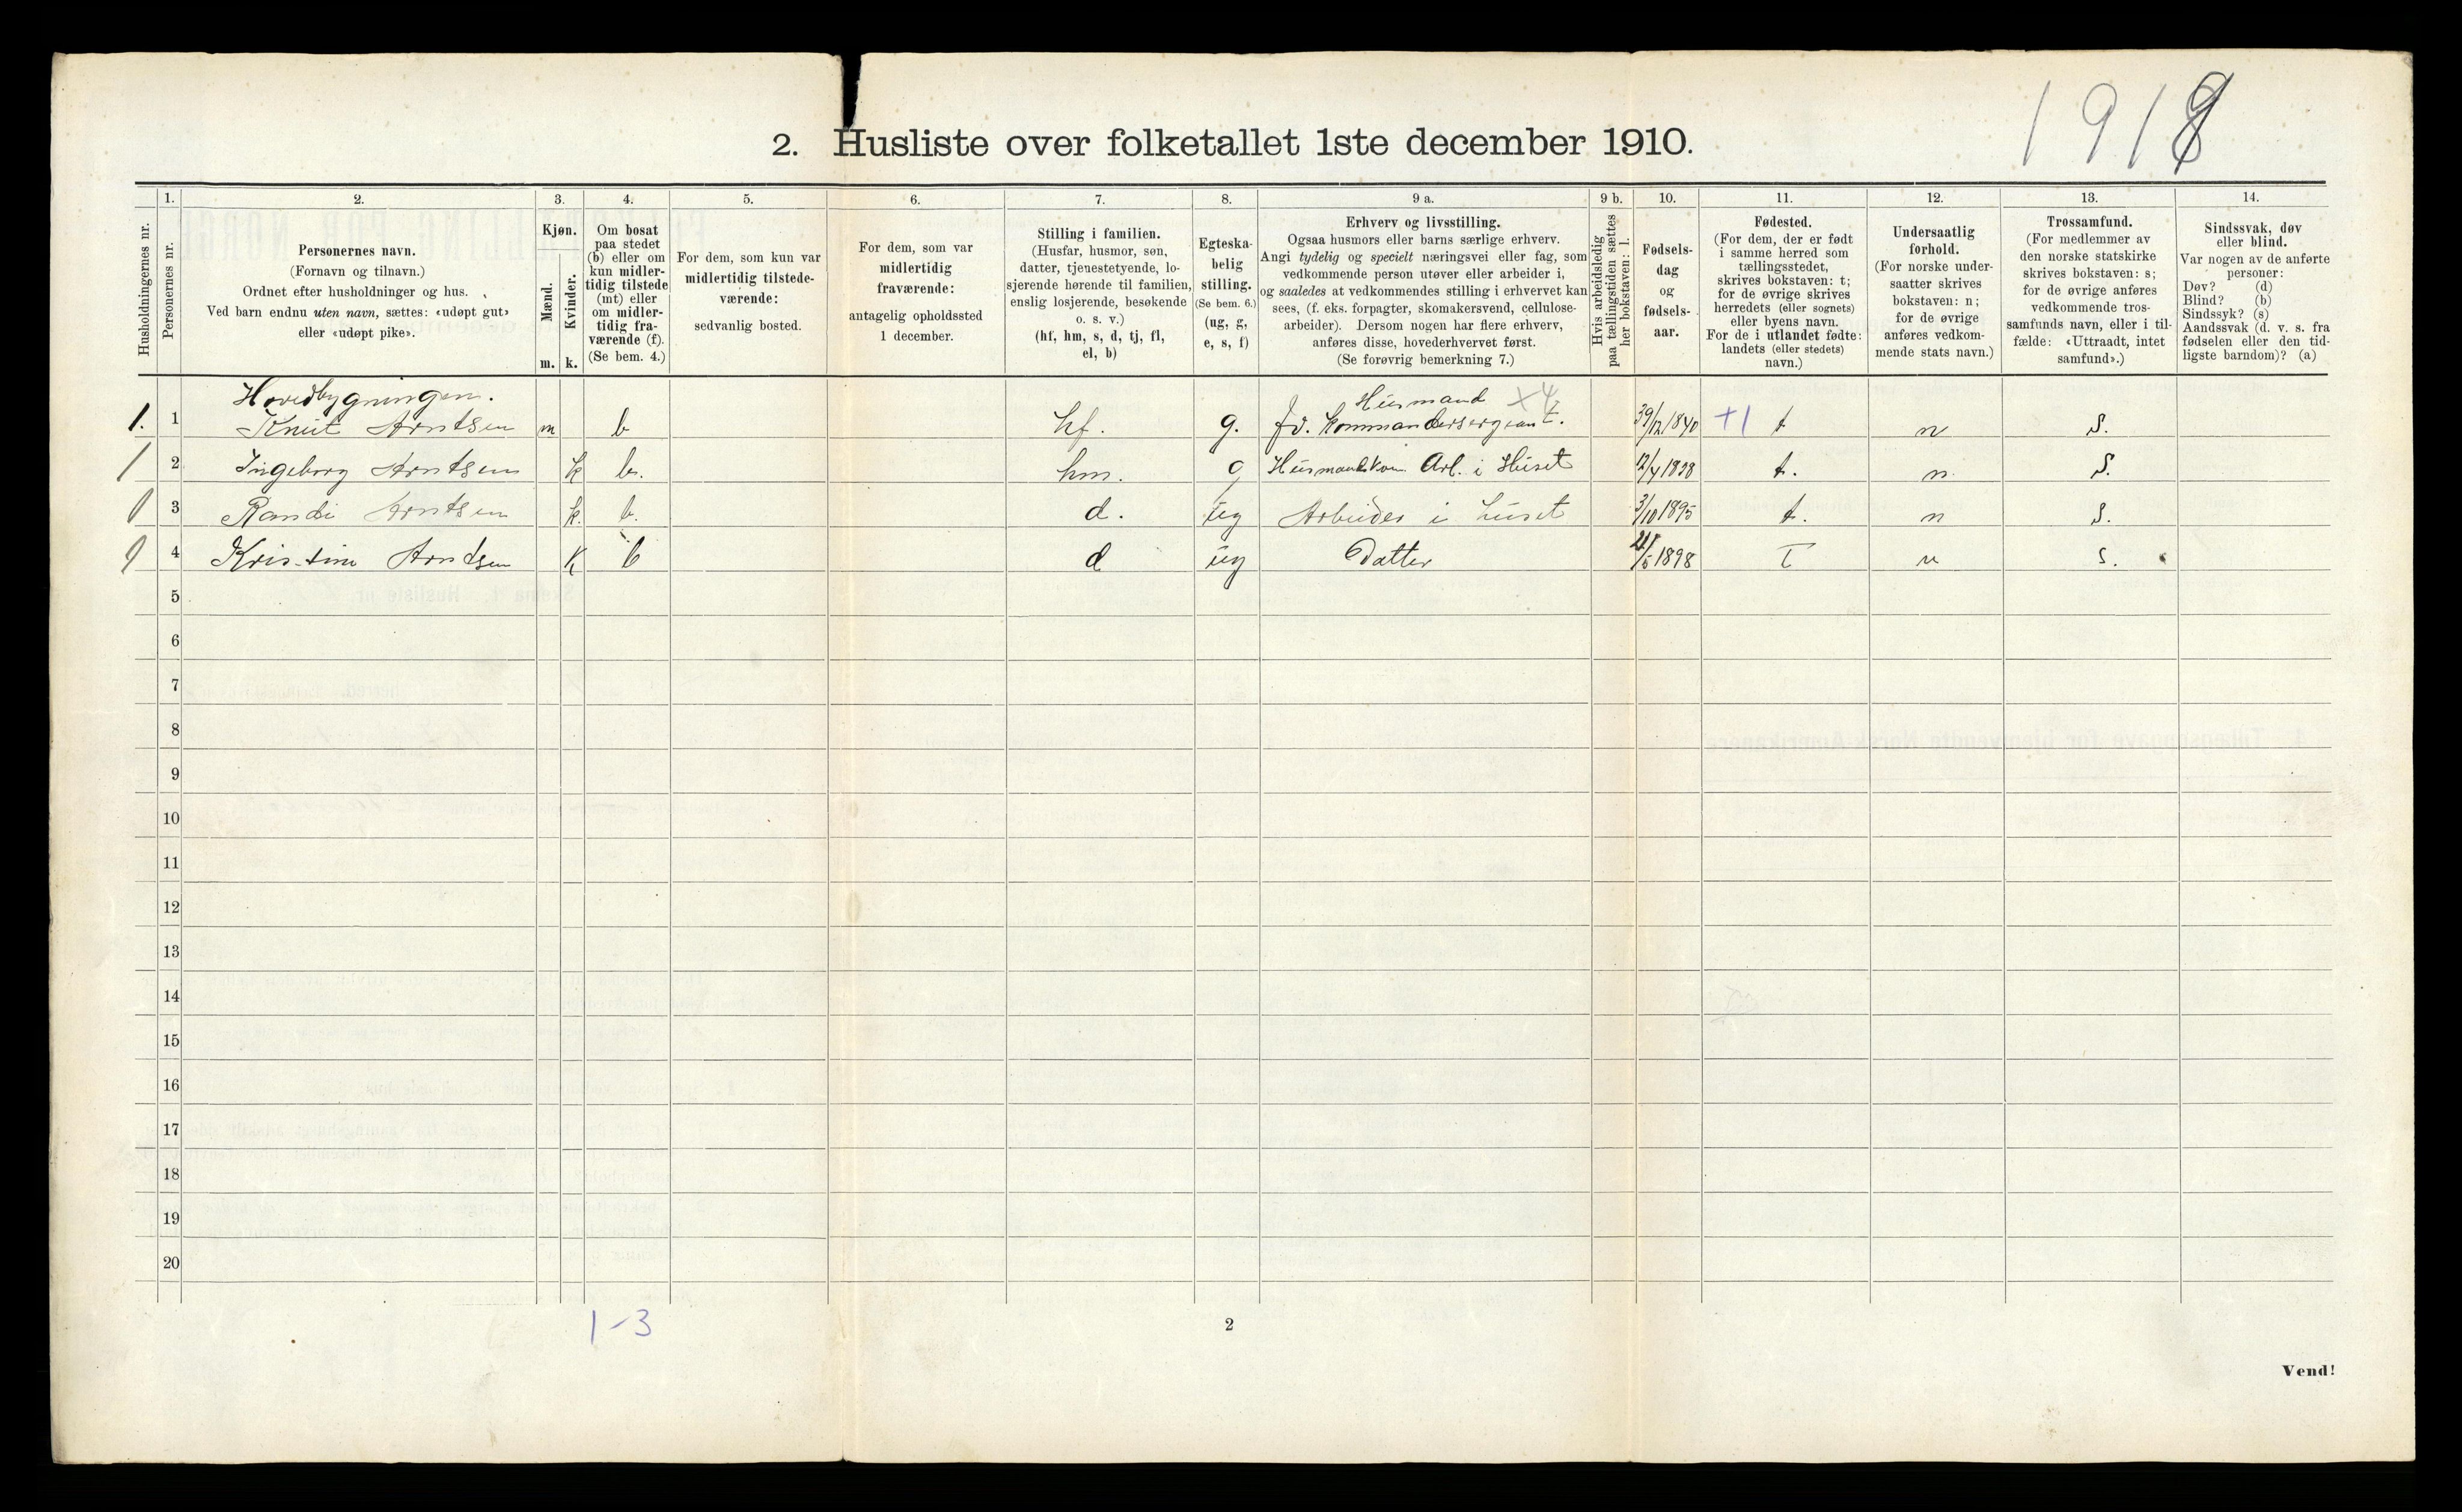 1918
2. Husliste over folketallet 1ste december 1910.
Husholdningernes nr.
1.
Personernes nr.
2.
Personernes navn.
(Fornavn og tilnavn.)
Ordnet efter husholdninger og hus.
Ved barn endnu uten navn, sættes: «udøpt gut»
eller «udøpt pike».
3.
Kjøn.
Mænd.
Kvinder.
m. k.
4.
Om bosat
paa stedet
(b) eller om
kun midler-
tidig tilstede
(mt) eller
om midler-
tidig fra-
værende (f).
(Se bem. 4.)
5.
For dem, som kun var
midlertidig tilstede-
værende:
sedvanlig bosted.
6.
For dem, som var
midlertidig
fraværende:
antagelig opholdssted
1 december.
7.
Stilling i familien.
(Husfar, husmor, søn,
datter, tjenestetyende, lo-
sjerende hørende til familien,
enslig losjerende, besøkende
o. s. v.)
(hf, hm, s, d, tj, fl,
el, b)
8.
Egteska-
belig
stilling.
(Se bem. 6.)
(ug, g,
e, s, f)
9 a.
Erhverv og livsstilling.
Ogsaa husmors eller barns særlige erhverv.
Angi tydelig og specielt næringsvei eller fag, som
vedkommende person utøver eller arbeider i,
og saaledes at vedkommendes stilling i erhvervet kan
sees, (f. eks. forpagter, skomakersvend, cellulose-
arbeider). Dersom nogen har flere erhverv,
anføres disse, hovederhvervet først.
(Se forøvrig bemerkning 7.)
9 b.
Hvis arbeidsledig
paa tællingstiden sættes
her bokstaven: l.
10.
Fødsels-
dag
og
fødsels-
aar.
11.
Fødested.
(For dem, der er født
i samme herred som
tællingsstedet,
skrives bokstaven: t;
for de øvrige skrives
herredets (eller sognets)
eller byens navn.
For de i utlandet fødte:
landets (eller stedets)
navn.)
12.
Undersaatlig
forhold.
(For norske under-
saatter skrives
bokstaven: n;
for de øvrige
anføres vedkom-
mende stats navn.)
13.
Trossamfund.
(For medlemmer av
den norske statskirke
skrives bokstaven: s;
for de øvrige anføres
vedkommende tros-
samfunds navn, eller i til-
fælde: «Uttraadt, intet
samfund».)
14.
Sindssvak, døv
eller blind.
Var nogen av de anførte
personer:
Døv? (d)
Blind? (b)
Sindssyk? (s)
Aandssvak (d. v. s. fra
fødselen eller den tid-
ligste barndom)? (a)
Hovedbygningen. Husmand x4
1. 1 Knut Arntsen m b hf. g. fv. Kommandersergeant. /12 1840 +1 t n S.
2 Ingeborg Arntsen k b. hm. g Arb. i Huset t. n. S.
3 Randi Arntsen k. b. d. ug Arbeider i huset 3/10 1895 t. n S.
4 Kristine Arntsen k b d ug Datter /5 1898 T n S.
5
6
7
8
9
10
11
12
13
14
15
16
17
18
19
20
1-3
2
Vend!